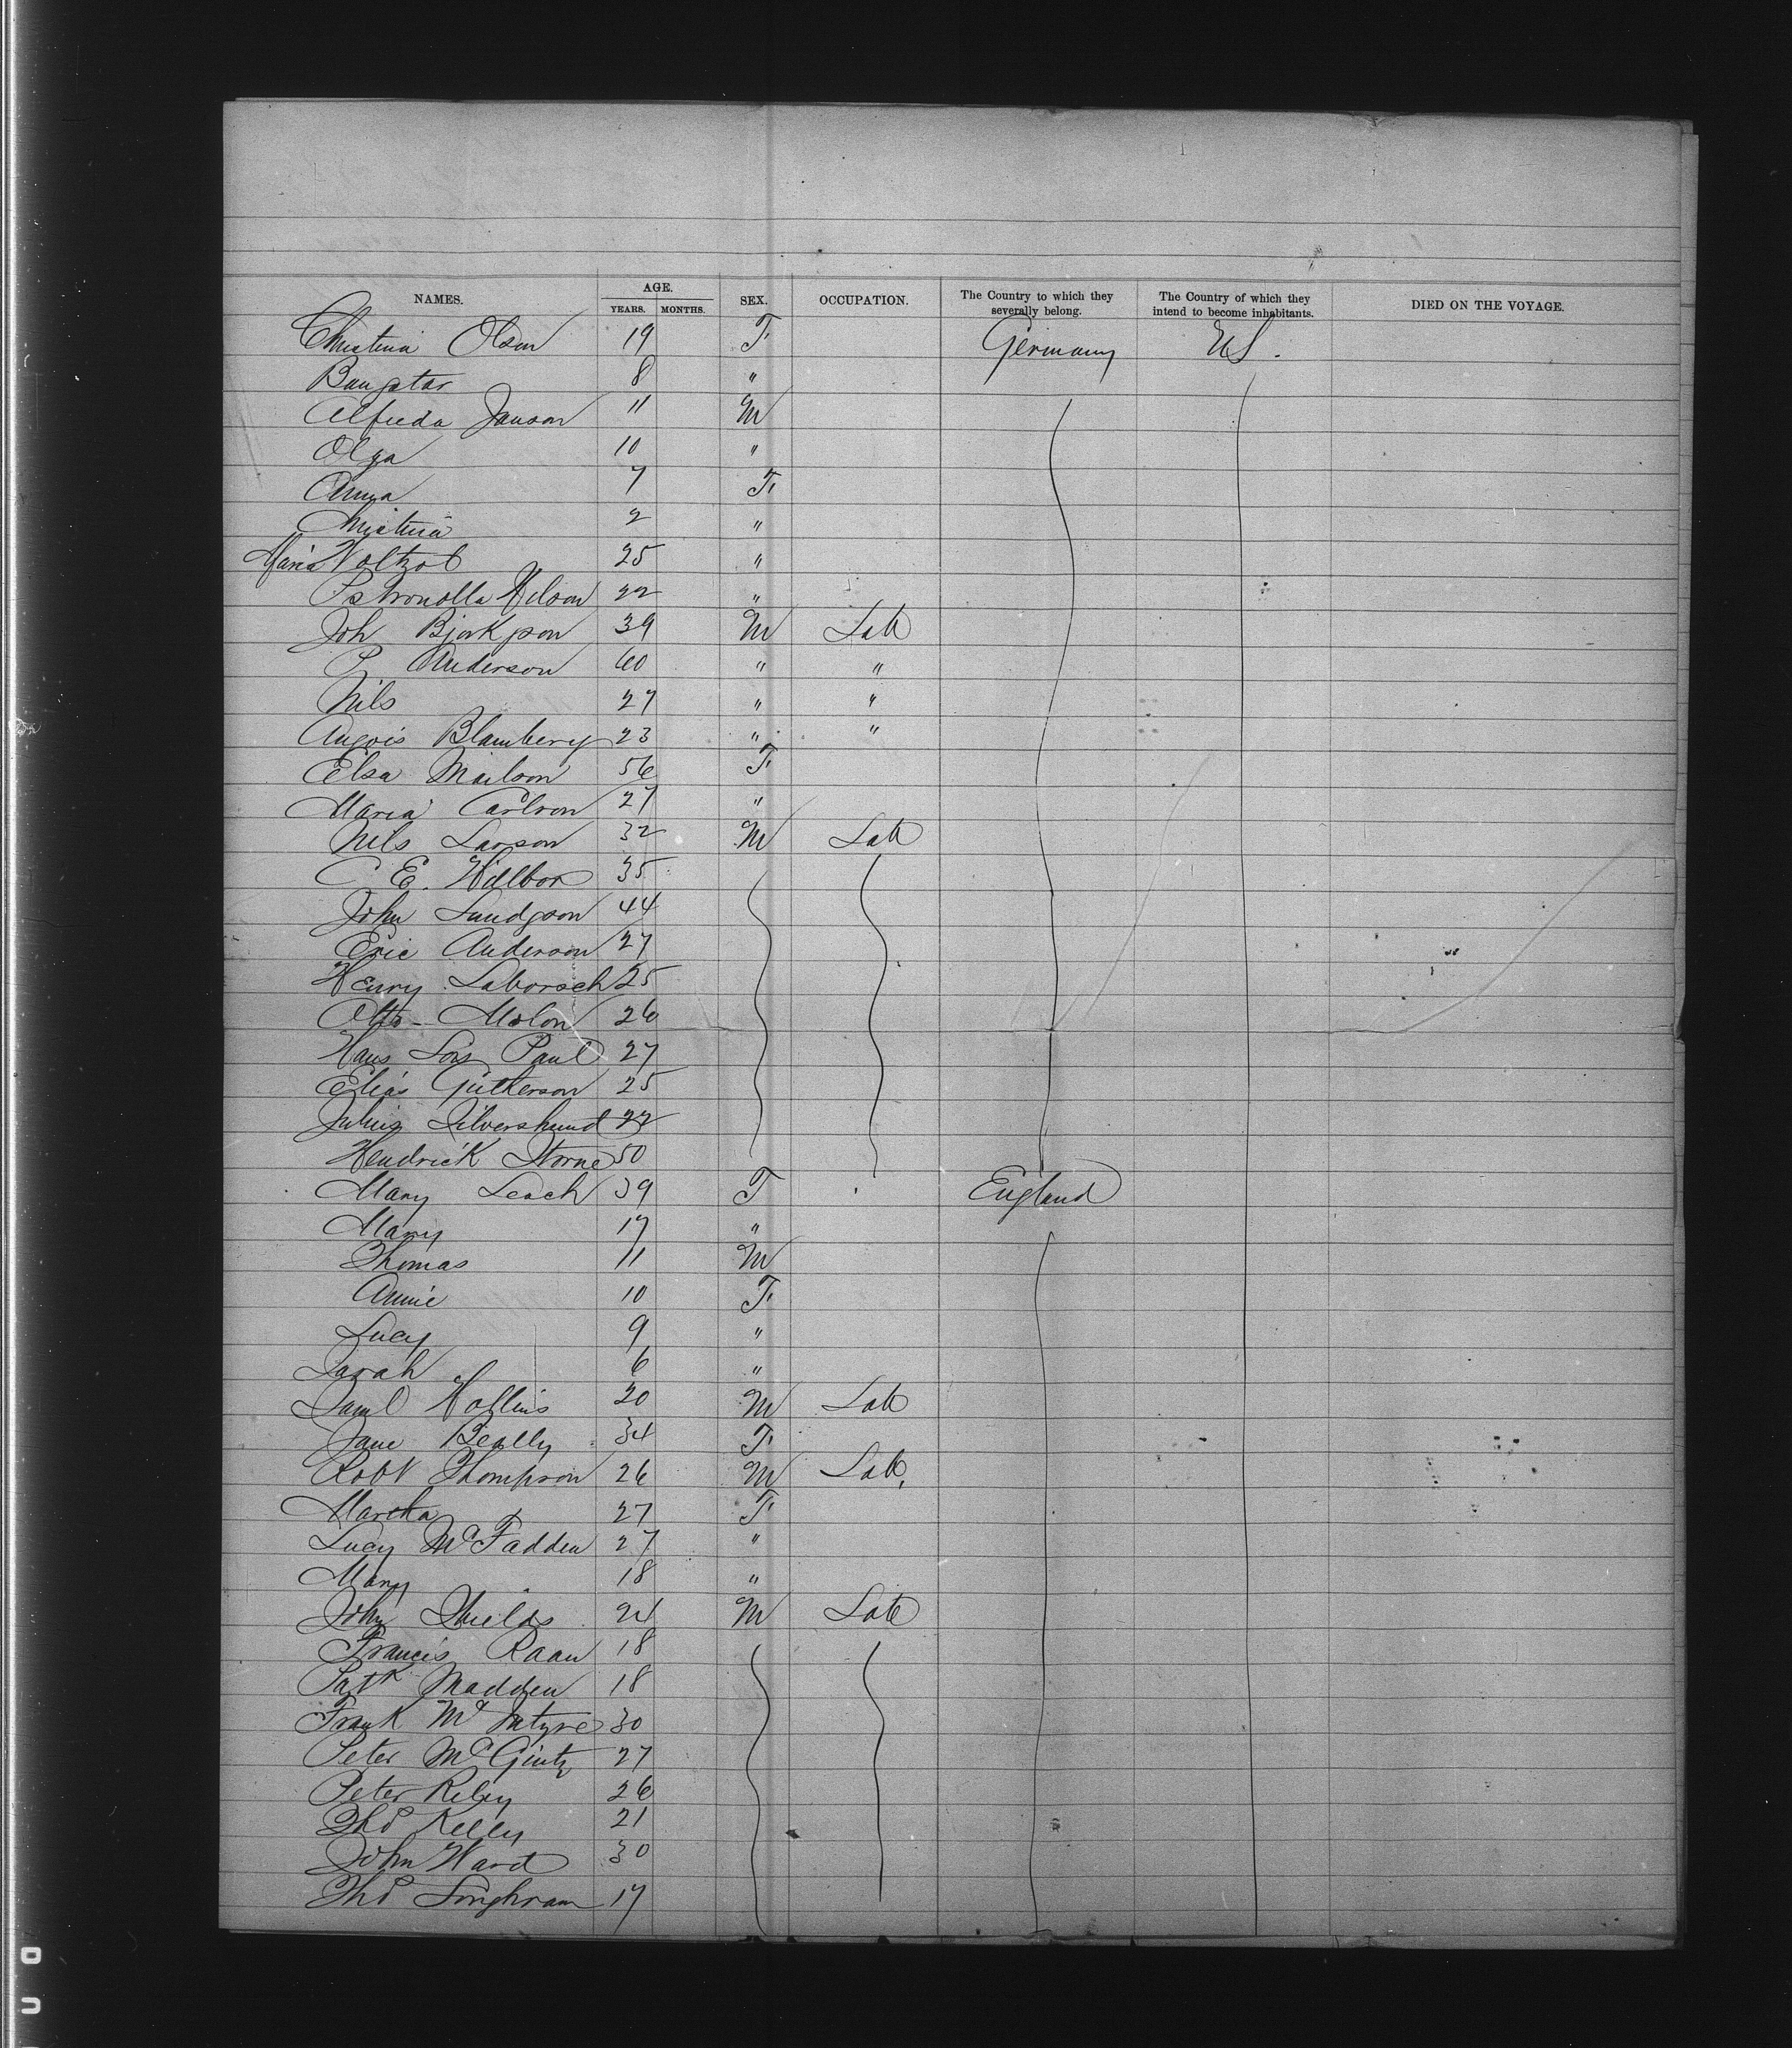 NAMES. AGE. YEARS. MONTHS. SEX. OCCUPATION. The Country to which they severally belong. The Country of which they intend to become inhabitants. DIED ON THE VOYAGE.
Christina Olson 19 F Germany US.
8 "
Alfreda Janson 11 M
Olga 10 "
Anna 7 F
Christina 2 "
Maria 25 "
Nilson 22 "
Joh Bjorkson 39 M Lab
P Anderson 60 " "
Nils 27 " "
Blamberg 23 " "
Elsa 56 F
Maria Carlson 27 "
Nils Larson 32 M Lab
C E. 35
John Lundgson 44
Eric Anderson 27
Henry Laborsch 25
26
Hans Paul 27
Elias Gutherson 25
Julius Silvershund 22
Hendrick Storne 50
Mary Leach 39 F England
Mary 17 "
Thomas 11 M
Annie 10 F
Lucy 9 "
Sarah 6 "
Saml Hollins 20 M Lab
Jane Beally 34 F
Robt Thompson 26 M Lab.
Martha 27 F
Lucy McFadden 27 "
Mary 18 "
John Shields 24 M Lab
Francis Raan 18
Patk Madden 18
Frank McIntyre 30
Peter McGinty 27
Peter Riley 26
Thos Kelly 21
John Ward 30
Thos Longhram 17